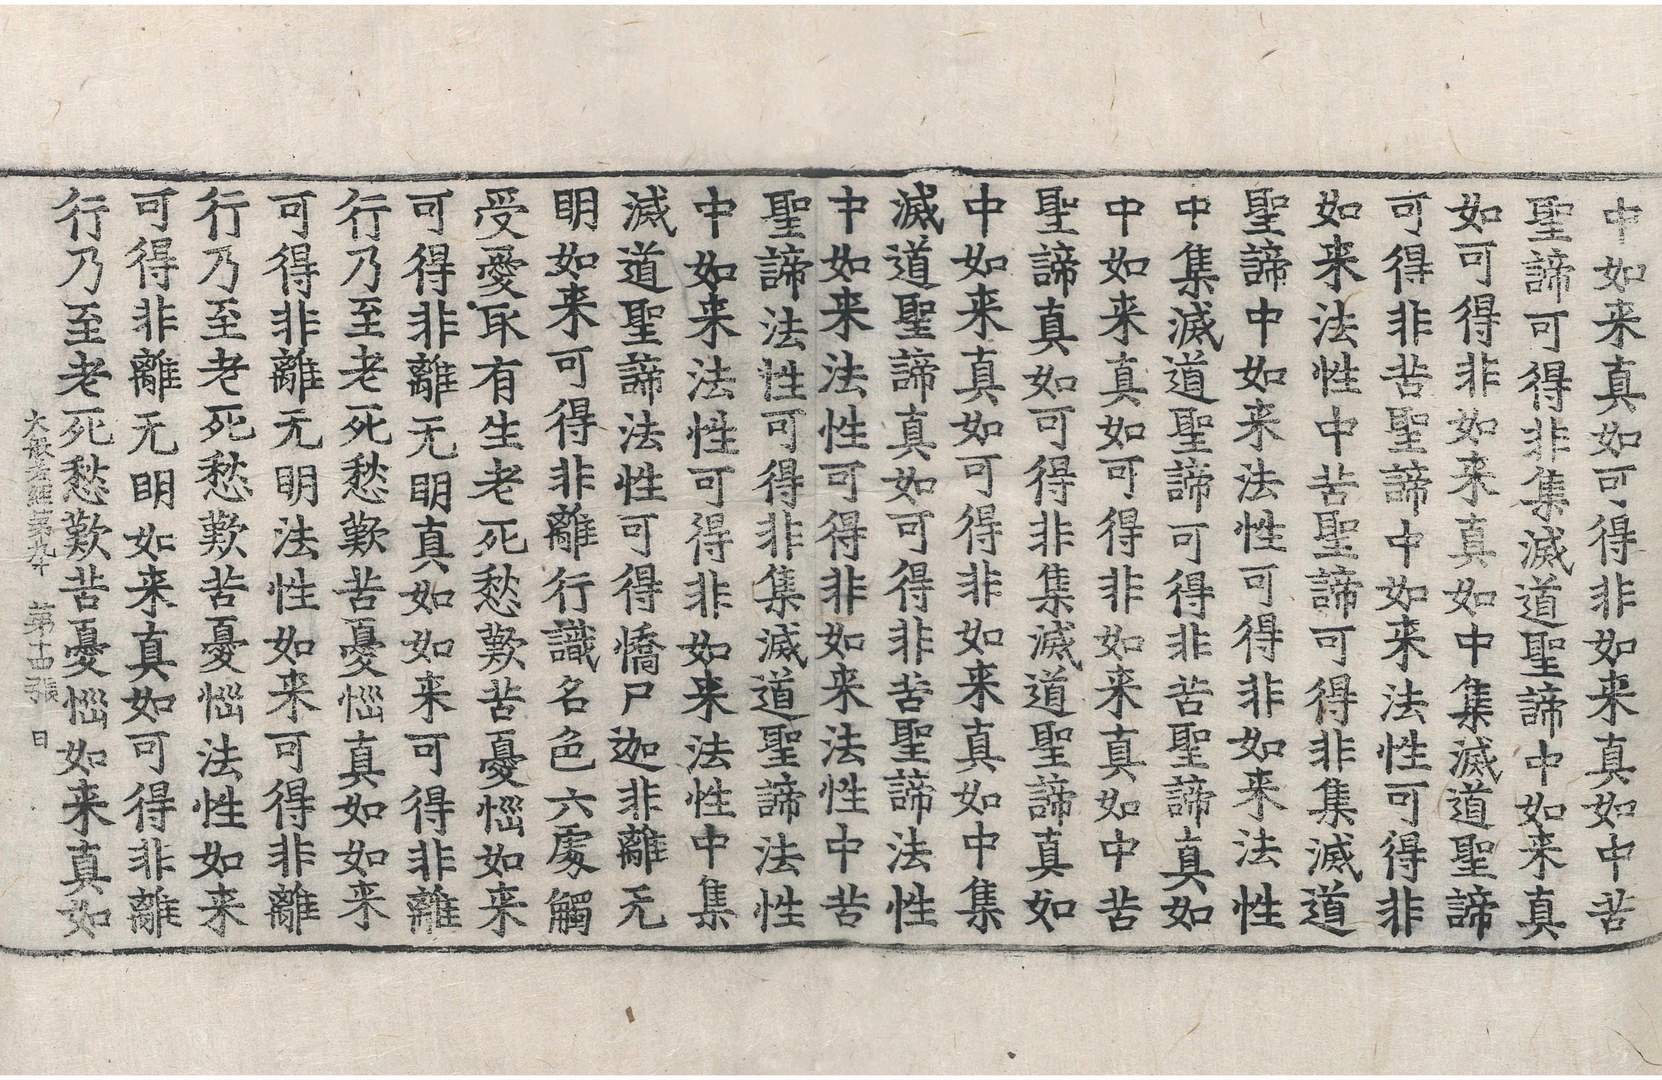 中如来真如可得非如来真如中苦
聖諦可得非集滅道聖諦中如来真
如可得非如来真如中集滅道聖諦
可得非苦聖諦中如来法性可得非
如来法性中苦聖諦可得非集滅道
聖諦中如来法性可得非如来法性
中集滅道聖諦可得非苦聖諦真如
中如来真如可得非如来真如中苦
聖諦真如可得非集滅道聖諦真如
中如来真如可得非如来真如中集
滅道聖諦真如可得非苦聖諦法性
中如来法性可得非如来法性中苦
聖諦法性可得非集滅道聖諦法性
中如来法性可得非如来法性中集
滅道聖諦法性可得憍尸迦非離无
明如来可得非離行識名色六處觸
受愛取有生老死愁歎苦憂惱如来
可得非離无明真如如来可得非離
行乃至老死愁歎苦憂惱真如如来
可得非離无明法性如来可得非離
行乃至老死愁歎苦憂惱法性如来
可得非離无明如来真如可得非離
行乃至老死愁歎苦憂惱如来真如
大般若經第九十　第十四張　日